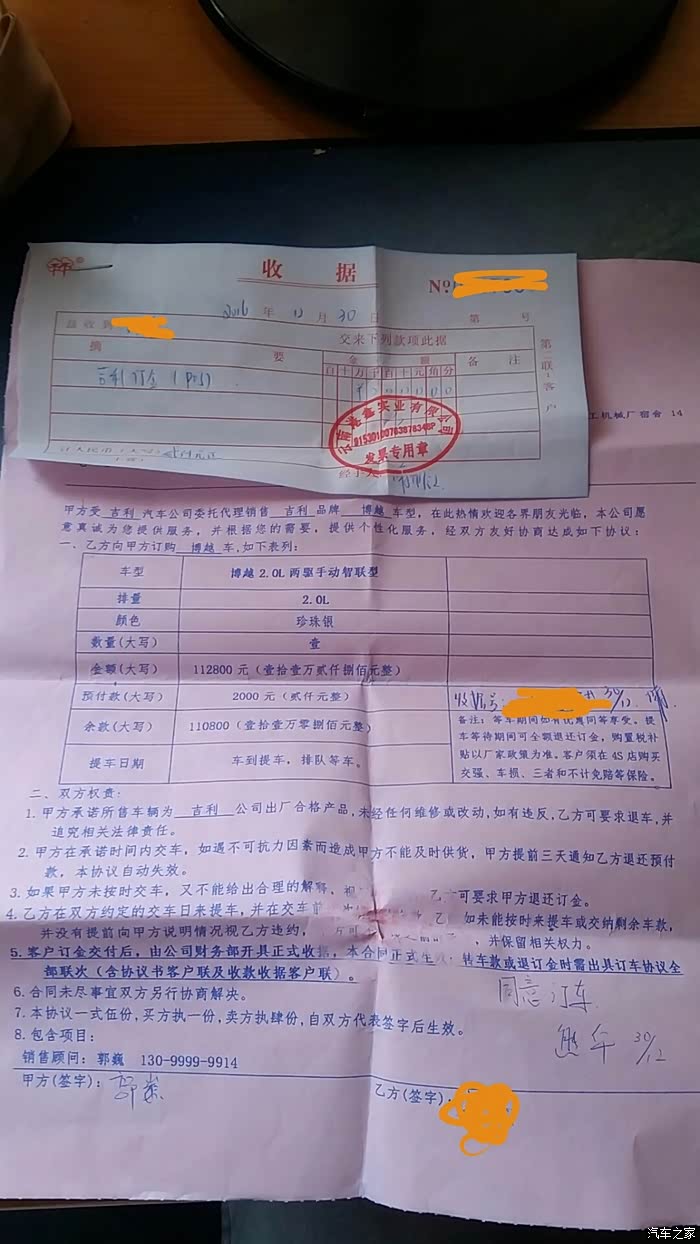 收 据
Nº
2016 年 12 月 30 日 第 号
兹收到
交来下列款项此据
摘 要
金 额
备 注
百十万千百十元角分
吉利订金(POS)
第二联:客户
发票专用章
工机械厂宿舍 14
甲方受 吉利 汽车公司委托代理销售 吉利 品牌 博越 车型,在此热情欢迎各界朋友光临,本公司愿
意真诚为您提供服务,并根据您的需要,提供个性化服务,经双方友好协商达成如下协议:
一、乙方向甲方订购 博越 车,如下表列:
车型 博越 2.0L 两驱手动智联型
排量 2.0L
颜色 珍珠银
数量(大写) 壹
金额(大写) 112800 元(壹拾壹万贰仟捌佰元整)
预付款(大写) 2000 元(贰仟元整)
收据号: 30/12
余款(大写) 110800(壹拾壹万零捌佰元整)
备注:等车期间如有优惠同等享受。提
车等待期间可全额退还订金,购置税补
贴以厂家政策为准。客户须在 4S 店购买
交强、车损、三者和不计免赔等保险。
提车日期 车到提车,排队等车。
二、双方权责:
1. 甲方承诺所售车辆为 吉利 公司出厂合格产品,未经任何维修或改动,如有违反,乙方可要求退车,并
追究相关法律责任。
2. 甲方在承诺时间内交车,如遇不可抗力因素而造成甲方不能及时供货,甲方提前三天通知乙方退还预付
款,本协议自动失效。
3. 如果甲方未按时交车,又不能给出合理的解释,视 乙方可要求甲方退还订金。
4. 乙方在双方约定的交车日来提车,并在交车前 如未能按时来提车或交纳剩余车款,
并没有提前向甲方说明情况视乙方违约, ,并保留相关权力。
5. 客户订金交付后,由公司财务部开具正式收据,本合同正式生效,转车款或退订金时需出具订车协议全
部联次(含协议书客户联及收款收据客户联)。
6. 合同未尽事宜双方另行协商解决。
同意订车
7. 本协议一式伍份,买方执一份,卖方执肆份,自双方代表签字后生效。
30/12
8. 包含项目:
销售顾问:郭巍 130-9999-9914
甲方(签字):
乙方(签字):
汽车之家